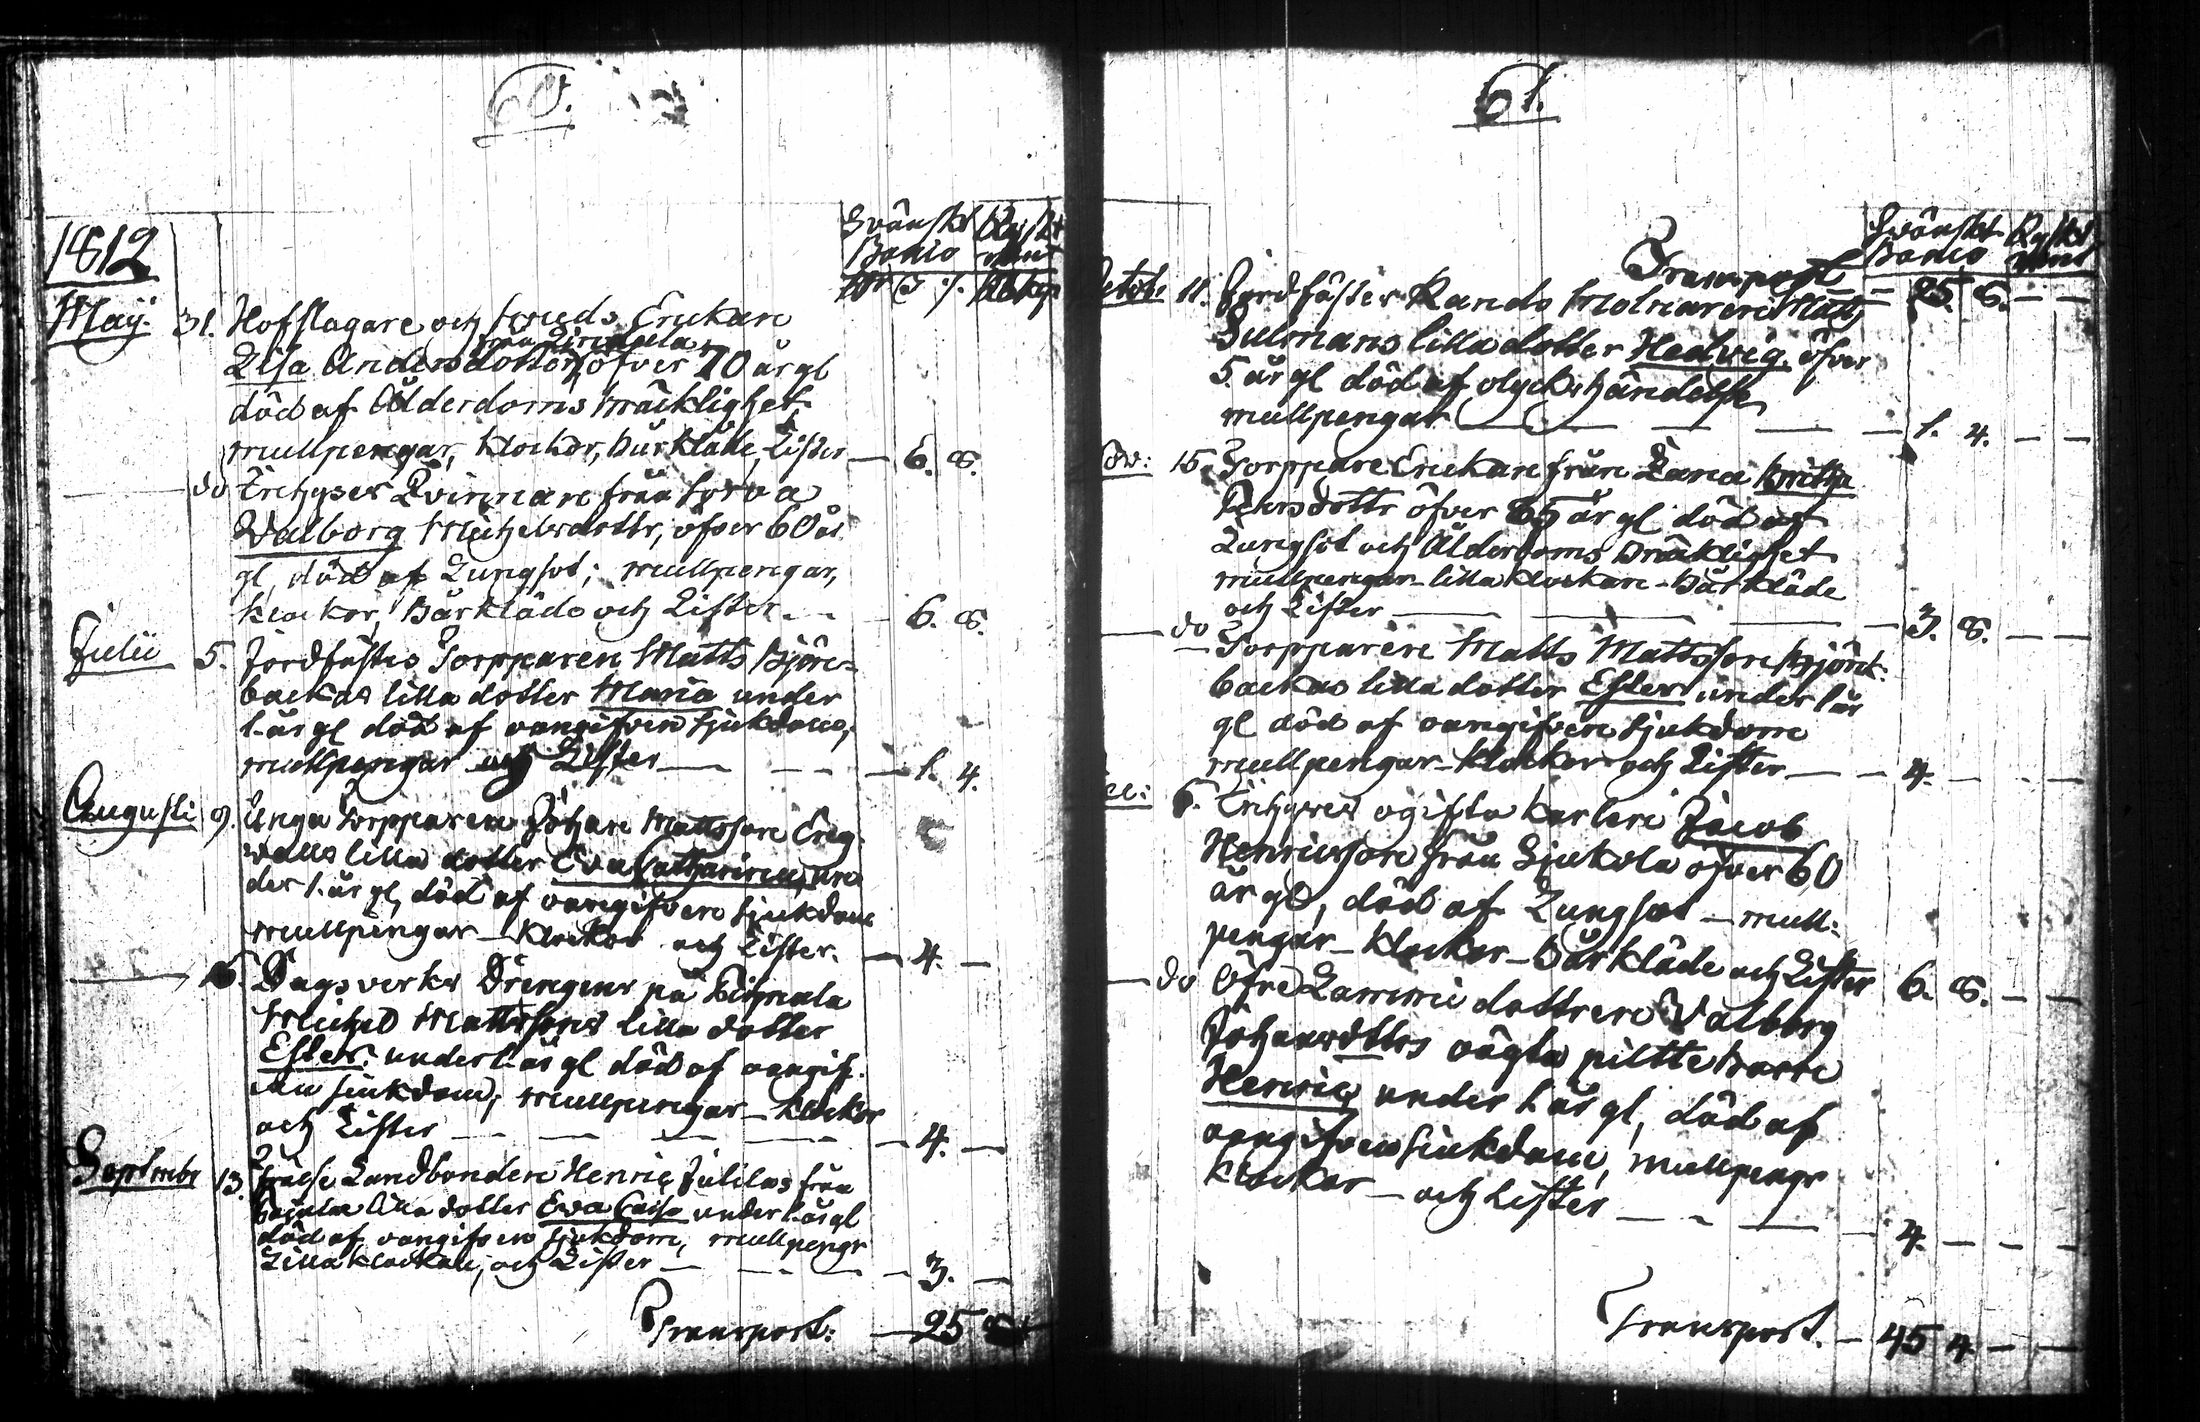 60.
1812
Svänskt Ryskt
Banco mint
May. 31. Hofslagare och Smeds Enckan
från
Lisa Andersdotter, öfver 70 år gl
död af Ålderdoms bräcklighet
mullpengar, klockor, Bårkläde, Lister — 6. 8.
do Inhyses Qvinnan från
Walborg Michelsdottr, öfver 60 år
gl, död af Lungsot; mullpengar,
klockor, Bårkläde och Lister — 6. 8.
Julii 5. Jordfästes Torpparen Matts Björn-
backas lilla dotter Maria under
1. år gl död af oangifven sjukdom,
mullpengar och Lister — 1. 4.
Augusti 9. Unga torpparen Johan Mattsson Eng-
walls lilla dotter Eva Catharina, un
der 1. år gl, död af oangifven sjukdom
mullpengar — klockor och Lister. — 4. —
— 16. Dagsverks Drengens på
Michel Mattssons lilla dotter
Ester. under 1. år gl död af oangif-
ven sjukdom, mullpengar — klockor
och Lister — 4. —
Septembr 13. frälse Landbonden Henric Julilas från
lilla dotter Eva Caisa under 1. år gl
död af oangifven sjukdom, mullpengr
Lilla klockan, och Lister — 3. —
Transport: — 25 8
61.
Svänskt Ryskt
Banco mint
Transport — 25. 8. — —
Octob. 11. Jordfästes Matts
Sulmans lilla dotter Hedvig, öfver
5. år gl död af olyckshändelse
mullpengar — 1. 4. — —
Nov: 15. Torppare Enckan från Lana Britha
Persdottr öfver 65 år gl död af
Lungsot och Ålderdoms bräcklighet
mullpengar — lilla klockan — Bårkläde
och Lister — 3. 8. — —
— do Torpparen Matts Mattsson Björck-
backas lilla dotter Ester under 1 år
gl död af oangifven sjukdom
mullpengar — klockor och Lister — 4. — —
6. Inhyses ogifta karlen Jacob
Henricsson från Sjukola öfver 60
år gl, död af Lungsot — mull-
pengar — klockor — Bårkläde och Lister 6. 8. — —
— do Öfre Lammi dottren Valborg
Johansdttrs oägta piltebarn
Henric under 1 år gl, död af
oangifven sjukdom, mullpengr
klockor — och Lister — 4. — —
Transport. — 45 4 — —